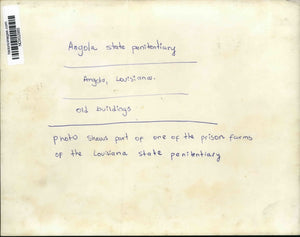 Angola state penitentiary
Angola, Louisiana.
old buildings
photo shows part of one of the prison farms
of the Louisiana state penitentiary